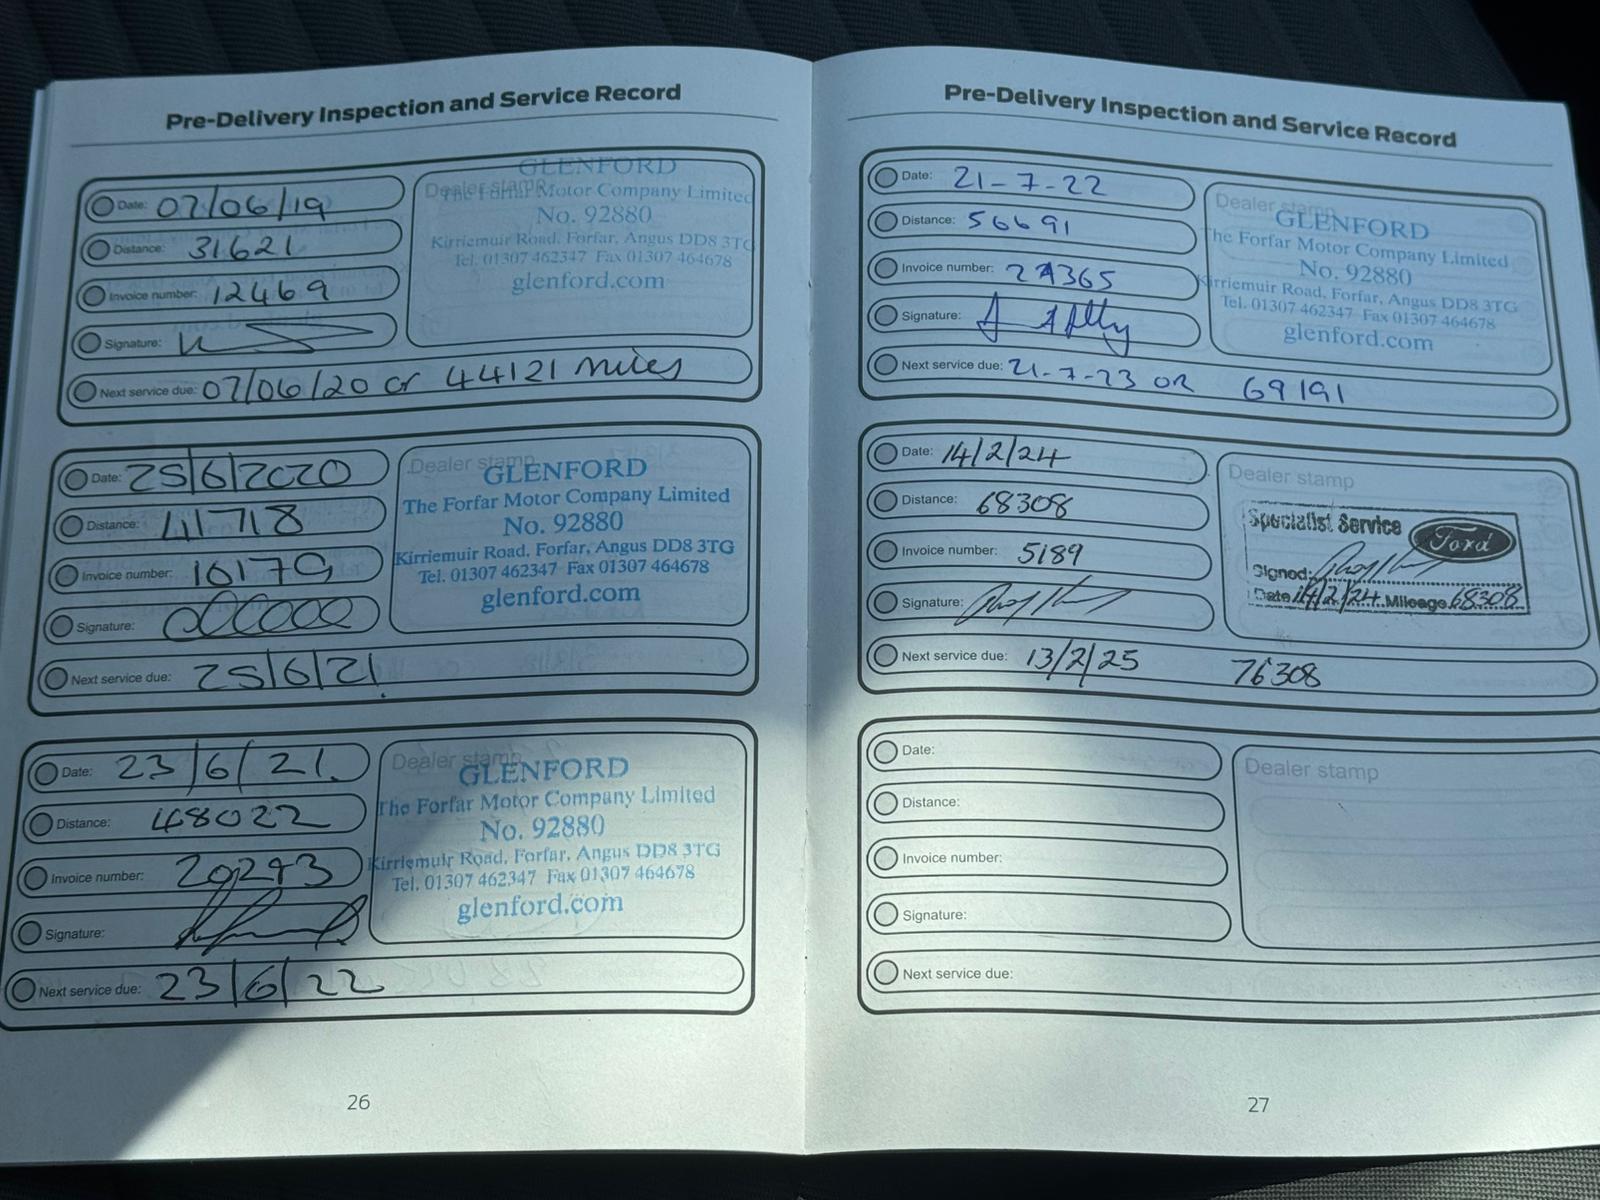 Pre-Delivery Inspection and Service Record
Date: 07/06/19
Distance: 31621
Invoice number: 12469
Signature:
Next service due: 07/06/20 or 44121 miles
Dealer stamp
GLENFORD
The Forfar Motor Company Limited
No. 92880
Kirriemuir Road, Forfar, Angus DD8 3TG
Tel. 01307 462347 Fax 01307 464678
glenford.com
Date: 25/6/2020
Distance: 41718
Invoice number: 16179
Signature:
Next service due: 25/6/21
Dealer stamp
GLENFORD
The Forfar Motor Company Limited
No. 92880
Kirriemuir Road, Forfar, Angus DD8 3TG
Tel. 01307 462347 Fax 01307 464678
glenford.com
Date: 23/6/21.
Distance: 48022
Invoice number: 20293
Signature:
Next service due: 23/6/22
Dealer stamp
GLENFORD
The Forfar Motor Company Limited
No. 92880
Kirriemuir Road, Forfar, Angus DD8 3TG
Tel. 01307 462347 Fax 01307 464678
glenford.com
26
Pre-Delivery Inspection and Service Record
Date: 21-7-22
Distance: 56691
Invoice number: 27365
Signature:
Next service due: 21-7-23 OR 69191
Dealer stamp
GLENFORD
The Forfar Motor Company Limited
No. 92880
Kirriemuir Road, Forfar, Angus DD8 3TG
Tel. 01307 462347 Fax 01307 464678
glenford.com
Date: 14/2/24
Distance: 68308
Invoice number: 5189
Signature:
Next service due: 13/2/25 76308
Dealer stamp
Specialist Service Ford
Signed:
Date 14/2/24 Mileage 68308
Date:
Distance:
Invoice number:
Signature:
Next service due:
Dealer stamp
27